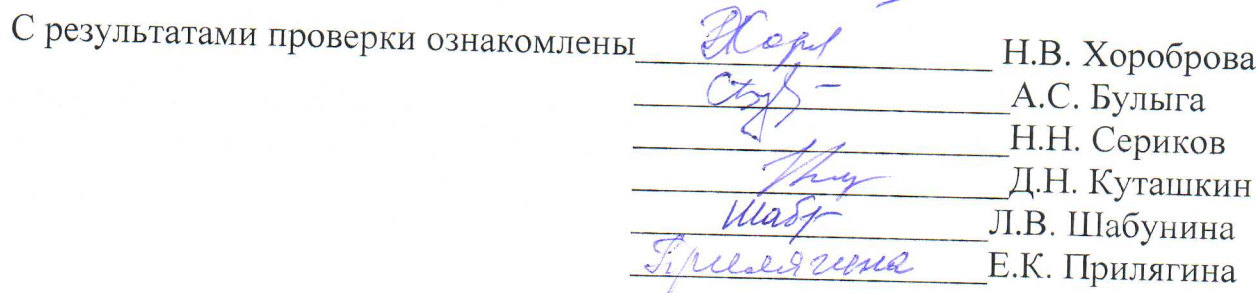 С результатами проверки ознакомлены Н.В. Хороброва
А.С. Булыга
Н.Н. Сериков
Д.Н. Куташкин
Шабр Л.В. Шабунина
Прилягина Е.К. Прилягина